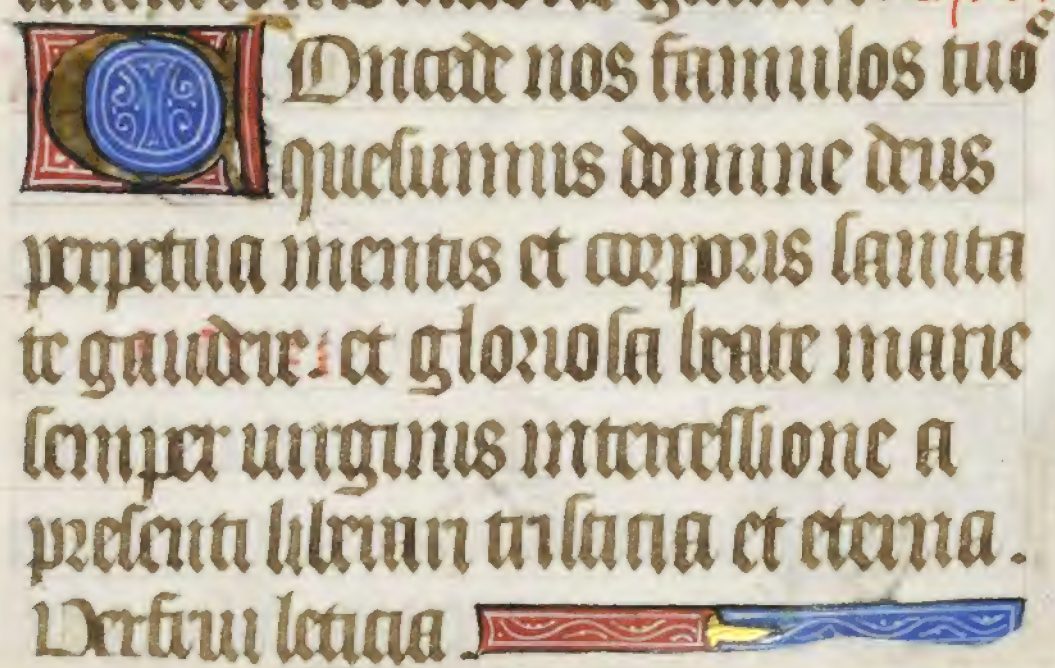 Concede nos famulos tuos
quesumus domine deus
perpetua mentis et corporis sanita
te gaudere: et gloriosa beate marie
semper uirginis intercessione a
presenti liberari tristicia et eterna.
Perfrui leticia